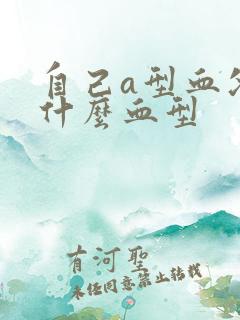 自己a型血
什麼血型
有河聖
未任同意禁止转载